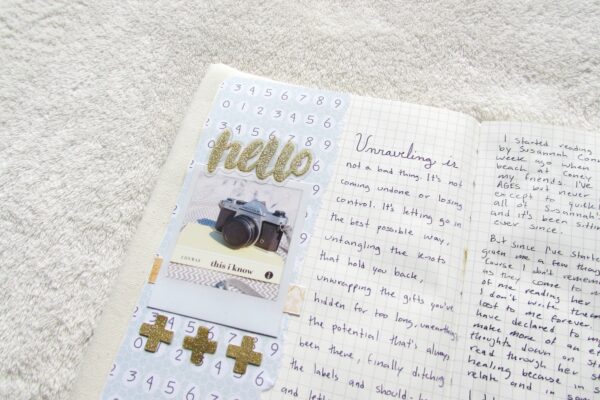 3 4 5 6 7 8 9
0 1 2 3 4 5 6
hello
this i know
Unraveling is
not a bad thing. It's not
coming undone or losing
control. It's letting go in
the best possible way,
untangling the knots
that hold you back,
unwrapping the gifts you've
hidden for too long, unearthing
the potential that's always
been there, finally ditching
the labels and should-
and letti
I started reading
by Susannah Con
week ago when
beach at Coney
my friends. I've
AGES but never
except to quickl
all of Susannah's
and it's been sittin
ever since.
But since I've starte
given me a few thoug
'cause I don't rememb
as they come
of me reading her
I don't write them
lost to me forever.
have declared to my
make more of an ef
thoughts down on
read through her st
healing because in s
relate and in som